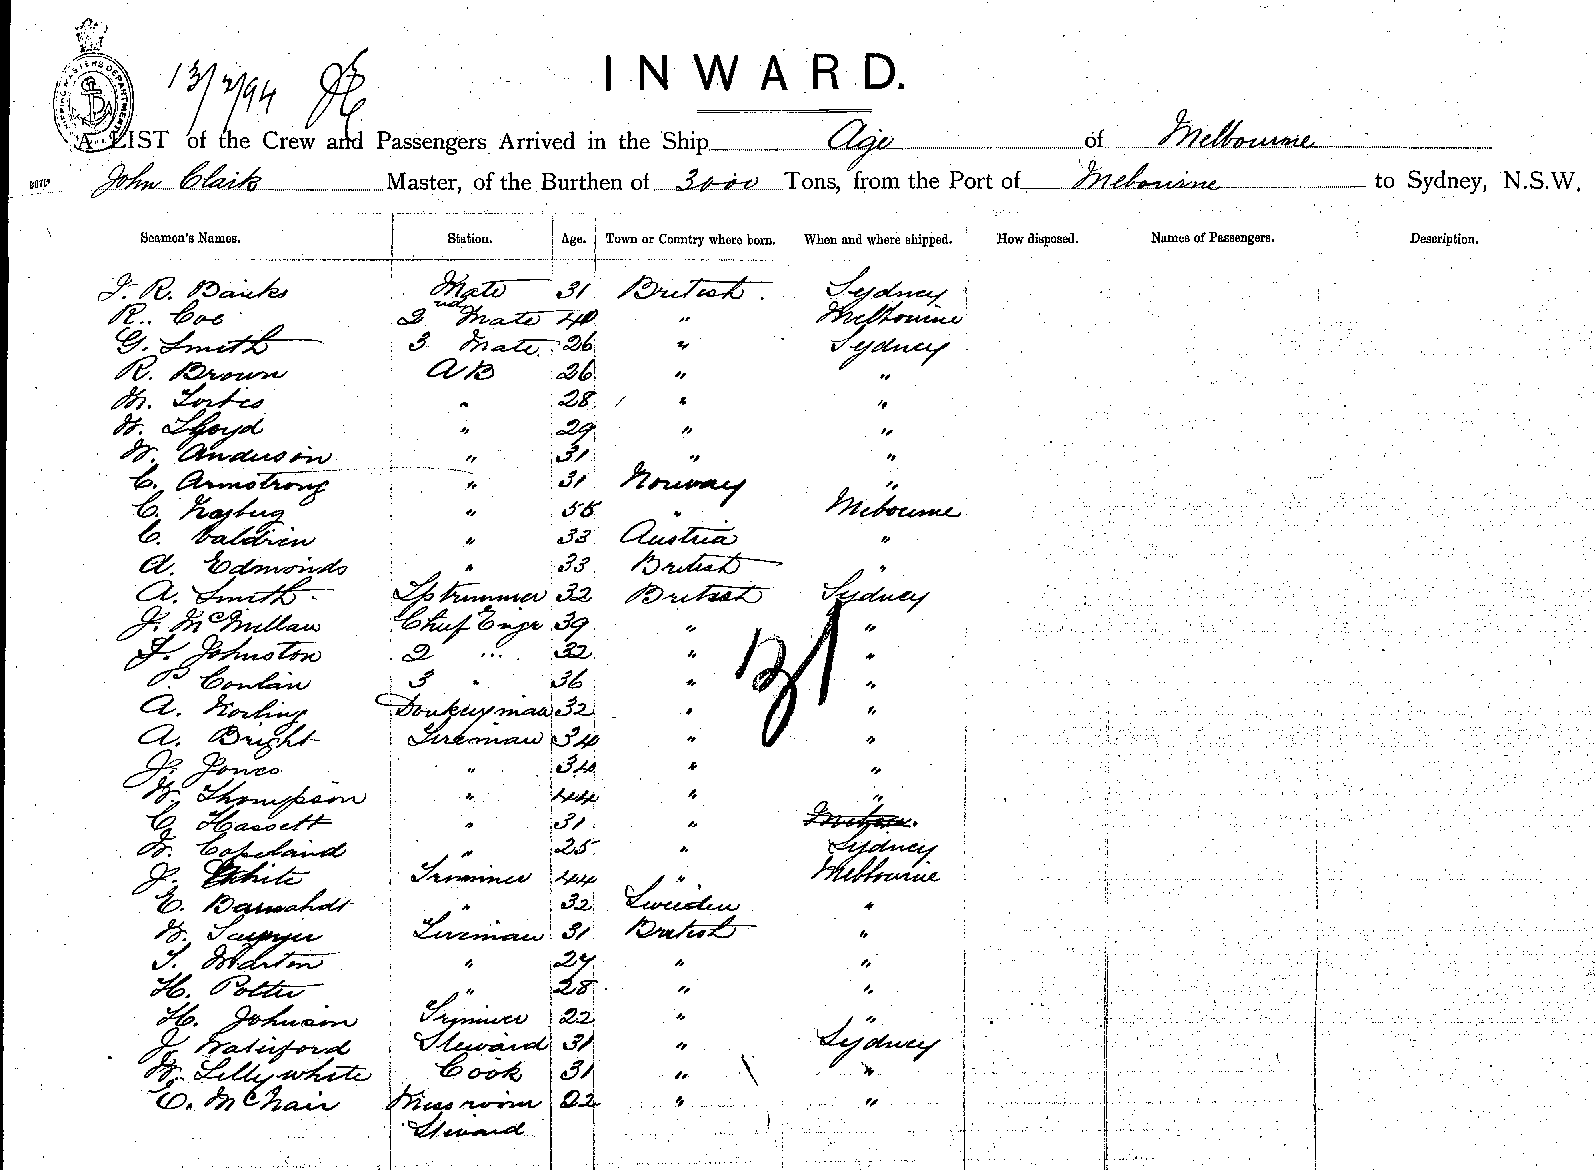 13/7/94
INWARD.
A LIST of the Crew and Passengers Arrived in the Ship Age of Melbourne
John Clark Master, of the Burthen of 3000 Tons, from the Port of Mebourne to Sydney, N.S.W.
Seamen's Names. Station. Age. Town or Country where born. When and where shipped. How disposed. Names of Passengers. Description.
J. R. Banks Mate 31 British. Sydney
R. Coe 2nd Mate 40 " Melbourne
G. Smith 3 Mate 26 " Sydney
R. Brown AB 26 " "
M. Forbes " 28 " "
W. Lloyd " 29 " "
W. Anderson " 31 " "
C. Armstrong " 31 Norway "
C. " " Mebourne
C. Valdrin " 33 Austria "
A. Edmonds " 33 British "
A. Smith Lptrimmer 32 British Sydney
J. McMillan Chief Engr 39 " "
F. Johnston 2 " 32 " "
P. Conlan 3 " 36 " "
A. Donkeyman 32 " "
A. Bright Fireman 34 " "
J. Jones " 34 " "
W. Thompson " 44 " "
C. Hassett " 31 "
W. Copeland " 25 " Sydney
J. White Trimmer 44 " Melbourne
E. " 32 Sweden "
W. Fireman 31 British "
T. Marton " 27 " "
H. Potter " 28 " "
H. Johnson Trimmer 22 " "
J. Waterford Steward 31 " Sydney
W. Lillywhite Cook 31 " "
C. McNair Messroom 22 " "
Steward